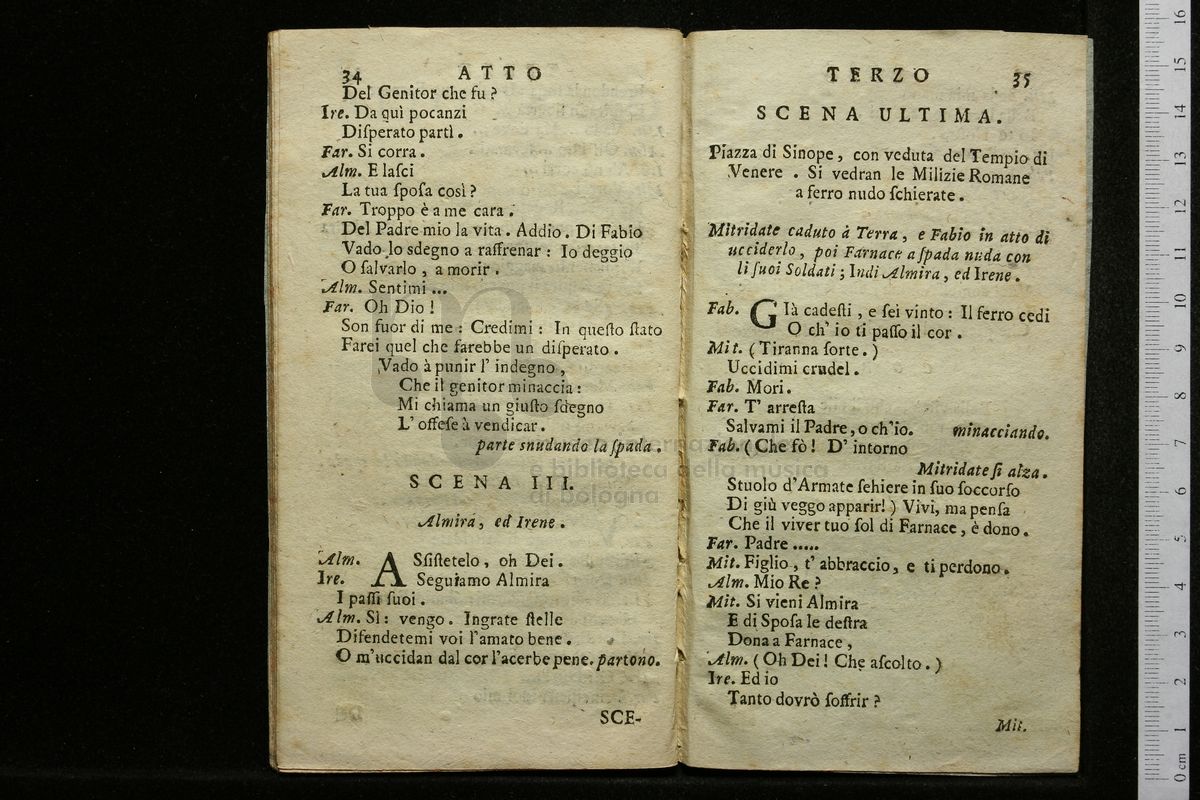 34 ATTO
Del Genitor che fu ?
Ire. Da quì pocanzi
Diſperato partì .
Far. Si corra .
Alm. E laſci
La tua ſpoſa così ?
Far. Troppo è a me cara .
Del Padre mio la vita . Addio . Di Fabio
Vado lo sdegno a raffrenar : Io deggio
O ſalvarlo , a morir .
Alm. Sentimi ...
Far. Oh Dio !
Son fuor di me : Credimi : In queſto ſtato
Farei quel che farebbe un diſperato .
Vado à punir l' indegno ,
Che il genitor minaccia :
Mi chiama un giuſto ſdegno
L' offeſe à vendicar .
parte snudando la ſpada .
SCENA III.
Almira , ed Irene .
Alm. ASſiſtetelo , oh Dei .
Ire. Seguiamo Almira
I paſſi ſuoi .
Alm. Sì : vengo . Ingrate ſtelle
Difendetemi voi l'amato bene .
O m'uccidan dal cor l'acerbe pene. partono.
SCE-
TERZO 35
SCENA ULTIMA.
Piazza di Sinope , con veduta del Tempio di
Venere . Si vedran le Milizie Romane
a ferro nudo ſchierate .
Mitridate caduto à Terra , e Fabio in atto di
ucciderlo , poi Farnace a ſpada nuda con
li ſuoi Soldati ; Indi Almira , ed Irene .
Fab. GIà cadeſti , e ſei vinto : Il ferro cedi
O ch' io ti paſſo il cor .
Mit. ( Tiranna ſorte . )
Uccidimi crudel .
Fab. Mori .
Far. T' arreſta
Salvami il Padre , o ch'io. minacciando.
Fab. ( Che fò ! D' intorno
Mitridate ſi alza .
Stuolo d'Armate ſehiere in ſuo ſoccorſo
Di giù veggo apparir! ) Vivi, ma penſa
Che il viver tuo ſol di Farnace , è dono .
Far. Padre .....
Mit. Figlio , t' abbraccio , e ti perdono .
Alm. Mio Re ?
Mit. Si vieni Almira
E di Spoſa le deſtra
Dona a Farnace ,
Alm. ( Oh Dei ! Che aſcolto . )
Ire. Ed io
Tanto dovrò ſoffrir ?
Mit.
e biblioteca della musica
di bologna
0 cm 1 2 3 4 5 6 7 8 9 10 11 12 13 14 15 16